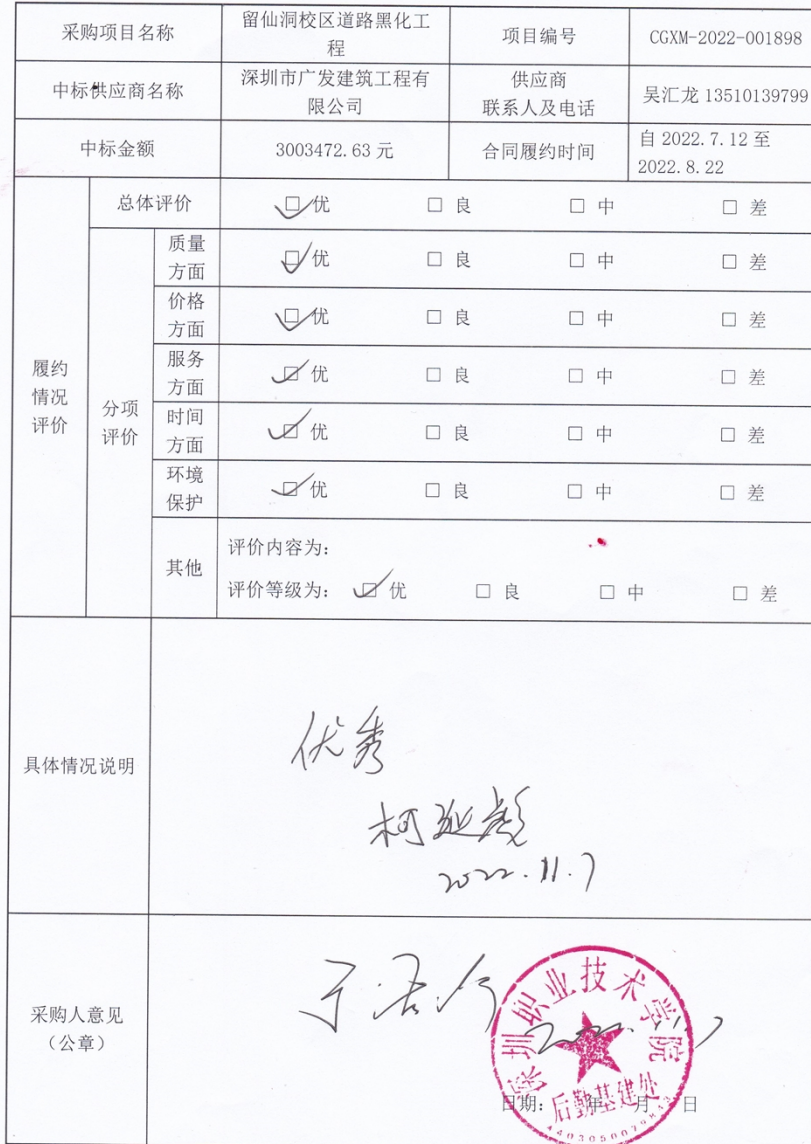 采购项目名称
留仙洞校区道路黑化工
程
项目编号
CGXM-2022-001898
中标供应商名称
深圳市广发建筑工程有
限公司
供应商
联系人及电话
吴汇龙 13510139799
中标金额
3003472.63 元
合同履约时间
自 2022.7.12 至
2022.8.22
履约
情况
评价
总体评价
□ 优 □ 良 □ 中 □ 差
分项
评价
质量
方面
□ 优 □ 良 □ 中 □ 差
价格
方面
□ 优 □ 良 □ 中 □ 差
服务
方面
□ 优 □ 良 □ 中 □ 差
时间
方面
□ 优 □ 良 □ 中 □ 差
环境
保护
□ 优 □ 良 □ 中 □ 差
其他
评价内容为:
评价等级为: □ 优 □ 良 □ 中 □ 差
具体情况说明
优秀
柯延
2022.11.7
采购人意见
（公章）
深圳职业技术学院
后勤基建处
日期: 年 月 日